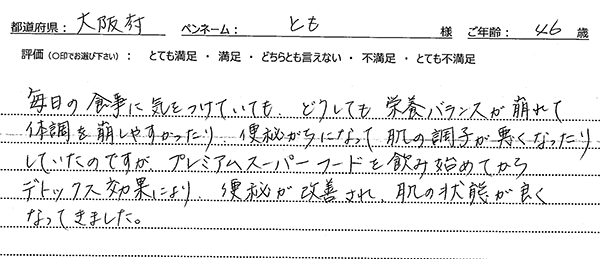 都道府県： 大阪府 ペンネーム： とも 様 ご年齢： 46 歳
評価（○印でお選び下さい） ： とても満足 ・ 満足 ・ どちらとも言えない ・ 不満足 ・ とても不満足
毎日の食事に気をつけていても、どうしても 栄養バランスが崩れて
体調を崩しやすかったり、便秘がちになって肌の調子が悪くなったり
していたのですが、プレミアムスーパーフードを飲み始めてから
デトックス効果により、便秘が改善され、肌の状態が良く
なってきました。